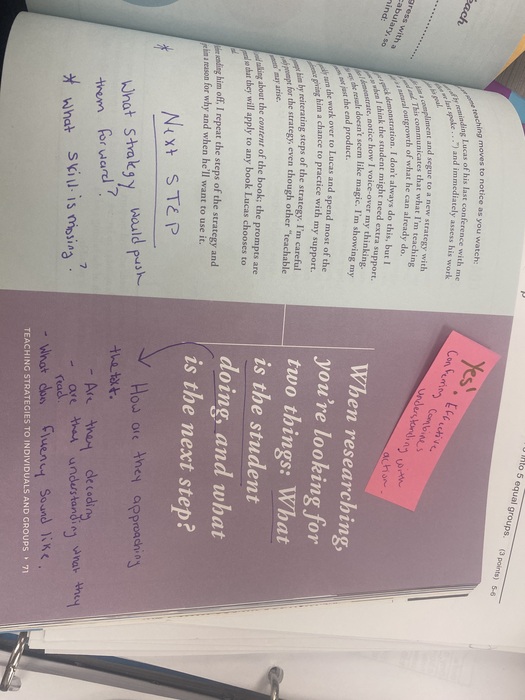 each
gress with a
cabulary, so
mind:
some teaching moves to notice as you watch:
by reminding Lucas of his last conference with me
we last spoke . . .") and immediately assess his work
goal.
a compliment and segue to a new strategy with
." This communicates that what I'm teaching
a natural outgrowth of what he can already do.
quick demonstration. I don't always do this, but I
when I think the student might need extra support.
I demonstrate, notice how I voice-over my thinking,
the result doesn't seem like magic. I'm showing my
not just the end product.
turn the work over to Lucas and spend most of the
giving him a chance to practice with my support.
him by reiterating steps of the strategy. I'm careful
prompt for the strategy, even though other "teachable
may arise.
talking about the content of the book; the prompts are
so that they will apply to any book Lucas chooses to
sending him off, I repeat the steps of the strategy and
a reason for why and when he'll want to use it.
* NEXT STEP
What strategy would push
them forward?
* What skill is missing?
into 5 equal groups.
(3 points) 5-6
Yes!
Effective
Conferring combines
understanding with
action.
When researching,
you're looking for
two things: What
is the student
doing, and what
is the next step?
How are they approaching
the text.
- Are they decoding
- are they understanding what they
read
- What does fluency sound like.
TEACHING STRATEGIES TO INDIVIDUALS AND GROUPS • 71